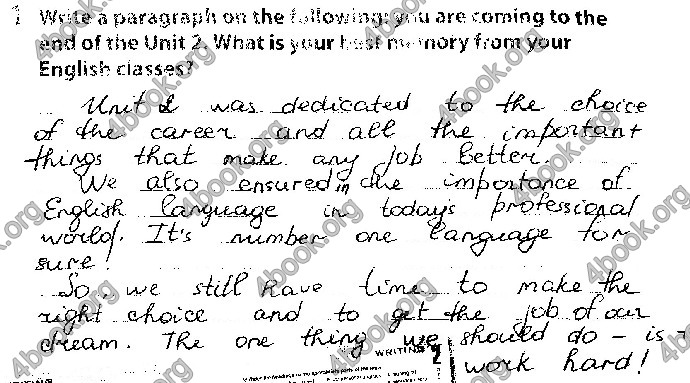 1 Write a paragraph on the following: you are coming to the
end of the Unit 2. What is your best memory from your
English classes?
Unit 2 was dedicated to the choice
of the career and all the important
things that make any job better.
We also ensured in the importance of
English language in today's professional
world. It's number one language for
sure!
So, we still have time to make the
right choice and to get the job of our
dream. The one thing we should do - is -
WRITING 2
work hard!
4book.org